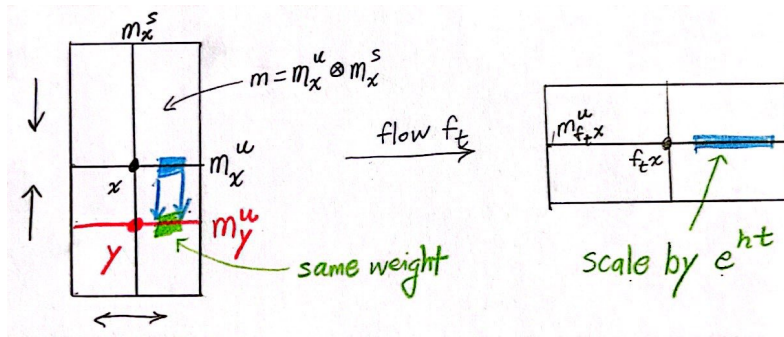 m_x^s
m = m_x^u ⊗ m_x^s
m_x^u
x
y
m_y^u
same weight
flow f_t
m_{f_t x}^u
f_t x
scale by e^{ht}